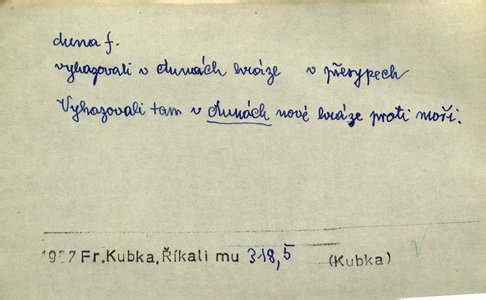 duna f.
vyhazovali v dunách hráze v přesypech
Vyhazovali tam v dunách nové hráze proti moři.
1957 Fr.Kubka, Říkali mu 318,5 (Kubka)